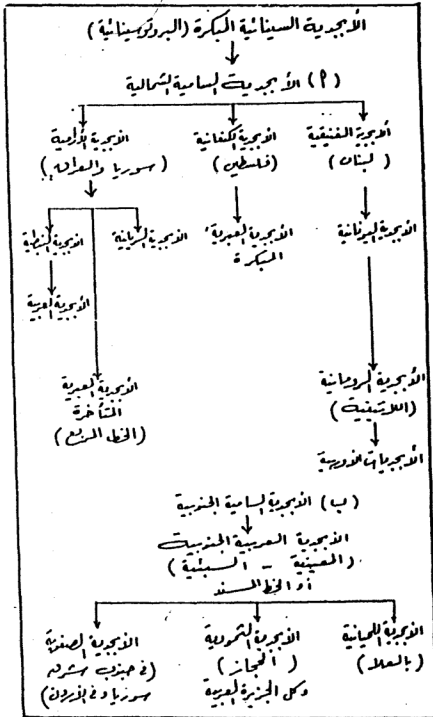 الأبجدية السينائية المبكرة (البروتوسينائية)
(أ) الأبجدية السامية الشمالية
الأبجدية الفينيقية
(لبنان)
الأبجدية الكنعانية
(فلسطين)
الأبجدية الآرامية
(سوريا والعراق)
الأبجدية اليونانية
الأبجدية العبرية
المبكرة
الأبجدية السريانية
الأبجدية النبطية
الأبجدية العربية
الأبجدية الرومانية
(اللاتينية)
الأبجدية العبرية
المتأخرة
(الخط المربع)
الأبجديات الأوربية
(ب) الأبجدية السامية الجنوبية
الأبجدية العربية الجنوبية
(المعينية - السبئية)
أو الخط المسند
الأبجدية اللحيانية
(بالعلا)
الأبجدية الثمودية
(الحجاز)
وكل الجزيرة العربية
الأبجدية الصفوية
(في جنوب شرق
سوريا وفي الأردن)